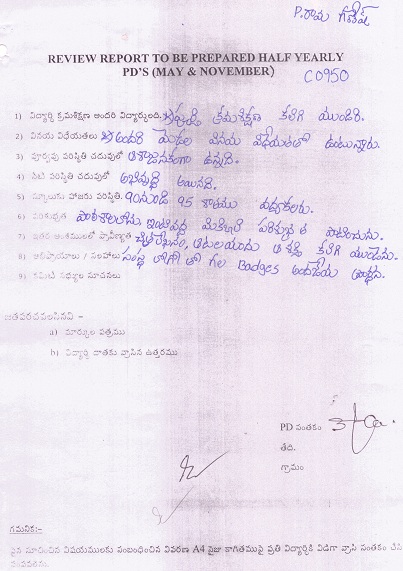 P. రామ గణేష్
REVIEW REPORT TO BE PREPARED HALF YEARLY
PD'S (MAY & NOVEMBER)
C0950
1) విద్యార్థి క్రమశిక్షణ అందరి విద్యార్థులది: క్రమశిక్షణ కలిగి యుండిరి.
2) వినయ విధేయతలు అందరి వినయ విధేయతలతో ఉంటున్నారు.
3) పూర్వపు పరిస్థితి చదువులో ఆశాజనకంగా ఉన్నది.
4) నేటి పరిస్థితి చదువులో అభివృద్ధి అయినది.
5) స్కూలుకు హాజరు పరిస్థితి. 90 నుండి 95 శాతము
6) పరిశుభ్రత పాఠశాలలోను, ఇంటివద్ద పరిశుభ్రత పాటించును.
7) ఇతర అంశములలో ప్రావీణ్యత చిత్రలేఖనం, ఆటలయందు ఆసక్తి కలిగి యుండెను.
8) అభిప్రాయాలు / సలహాలు సంస్థ లోగో తో గల Badges అందజేయ ప్రార్థన.
9) కమిటీ సభ్యుల సూచనలు
జతపరచవలసినవి -
a) మార్కుల పత్రము
b) విద్యార్థి దాతకు వ్రాసిన ఉత్తరము
PD సంతకం
తేది.
గ్రామం
గమనిక:-
పైన సూచించిన విషయములకు సంబంధించిన వివరణ A4 సైజు కాగితముపై ప్రతి విద్యార్థికి విడిగా వ్రాసి సంతకం చేసి